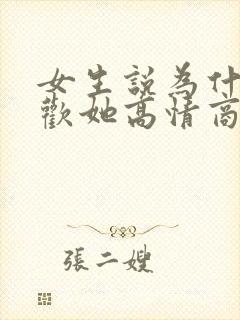 女生說為什
歡她高情商
張二嫂